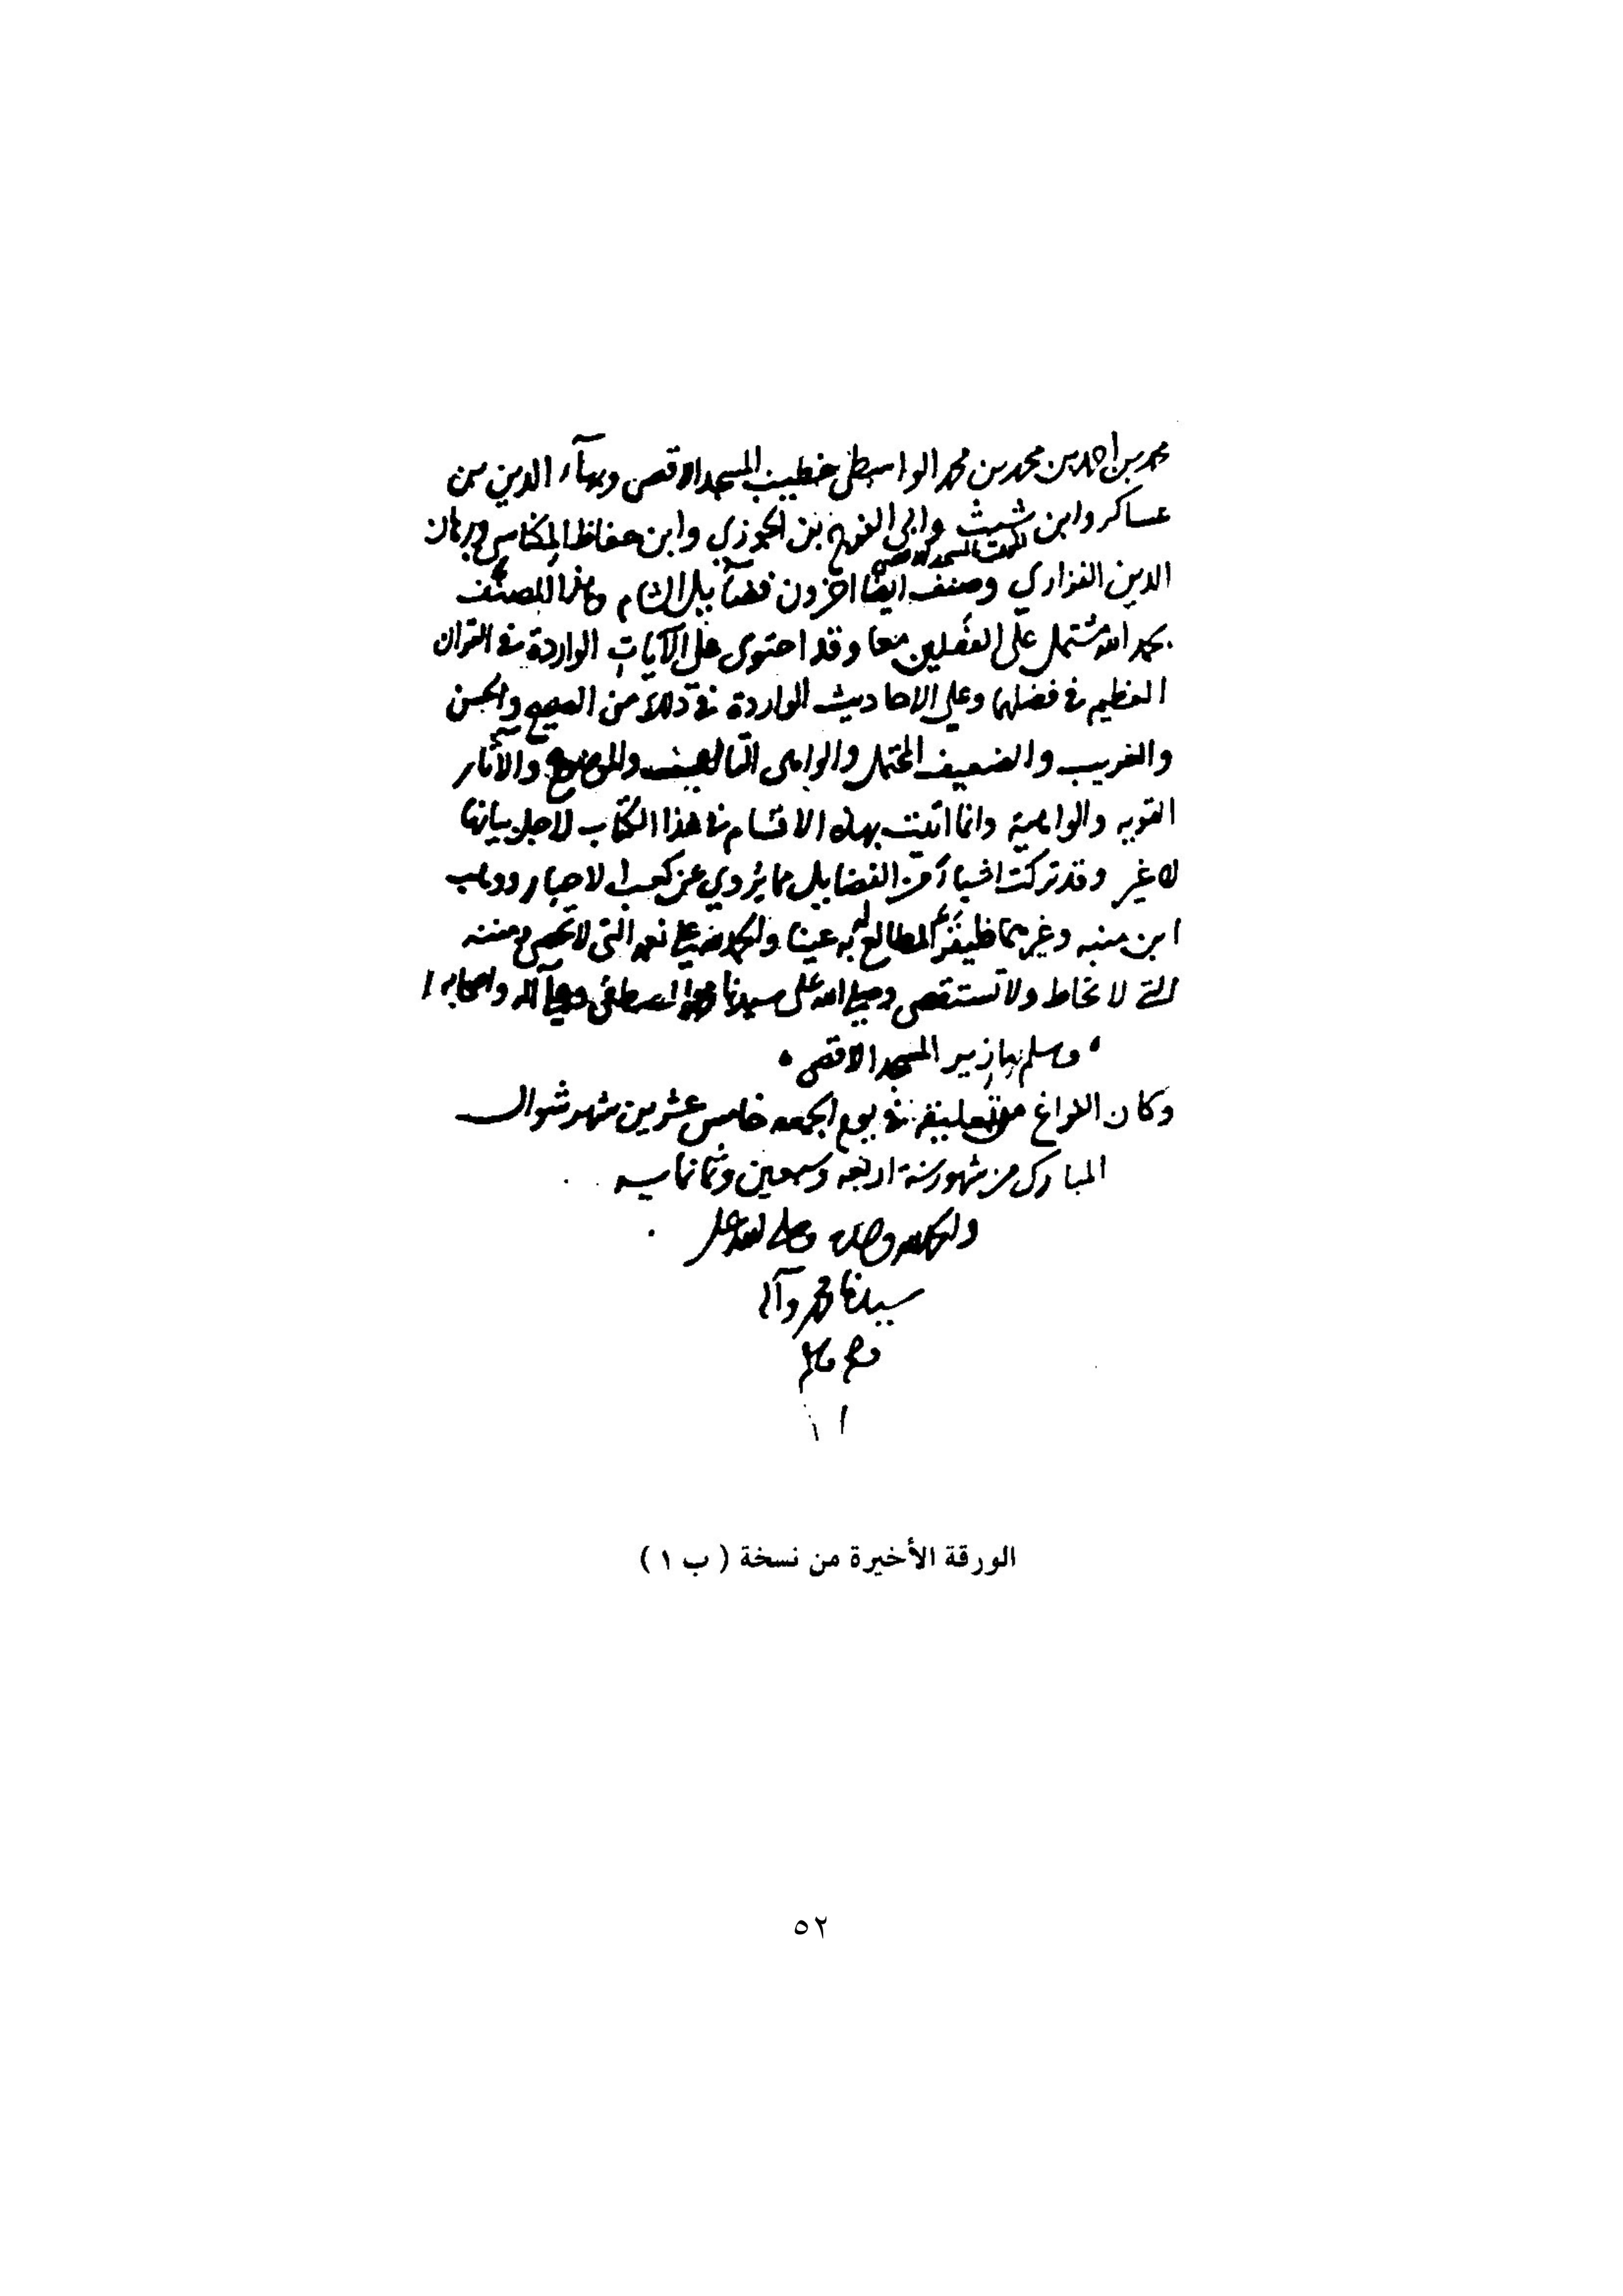 محمد بن احمد بن محمد بن محمد الواسطي خطيب المسجد الاقصى وبهآء الدين بن
عساكر وابن شيث وابي الفرج بن الجوزي وابن حفاظ المكناسي وبرهان
الدين الفزاري وصنف ايضا اخرون فضآيل الشام وهذا المصنف
بحمد الله مشتمل على الفضلين معا وقد احتوى على الآيات الواردة في القران
العظيم في فضلهما وعلى الاحاديث الواردة في ذلك من الصحيح والحسن
والغريب والضعيف المحتمل والواهى التالف والموضوع والآثار
القويه والواهية وانما اتيت بهذه الاقسام في هذا الكتاب لاجل بيانها
لا غير وقد تركت اخبارًا من الفضايل مما يروي عن كعب الاحبار ووهب
ابن منبه وغيرهما المطالع به عينا والحمد لله على نعمه التى لا تحصى ومننه
التي لا تحاط ولا تستقصى وصلى الله على سيدنا محمد المصطفى وعلى آله واصحابه
وسلم المسجد الاقصى
وكان الفراغ من تعليقه في يوم الجمعه خامس عشرين شهر شوال
المبارك من شهور سنة اربعه وسبعين وثمانمايه
والحمد لله وحده وصلى الله على
سيدنا محمد وآله
وصحبه وسلم
الورقة الأخيرة من نسخة ( ب ١ )
٥٢